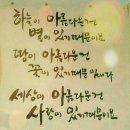 하늘이 아름다운건
별이 있기때문이요
땅이 아름다운건
꽃이 있기때문입니다
세상이 아름다운건
사람이 있기때문이요